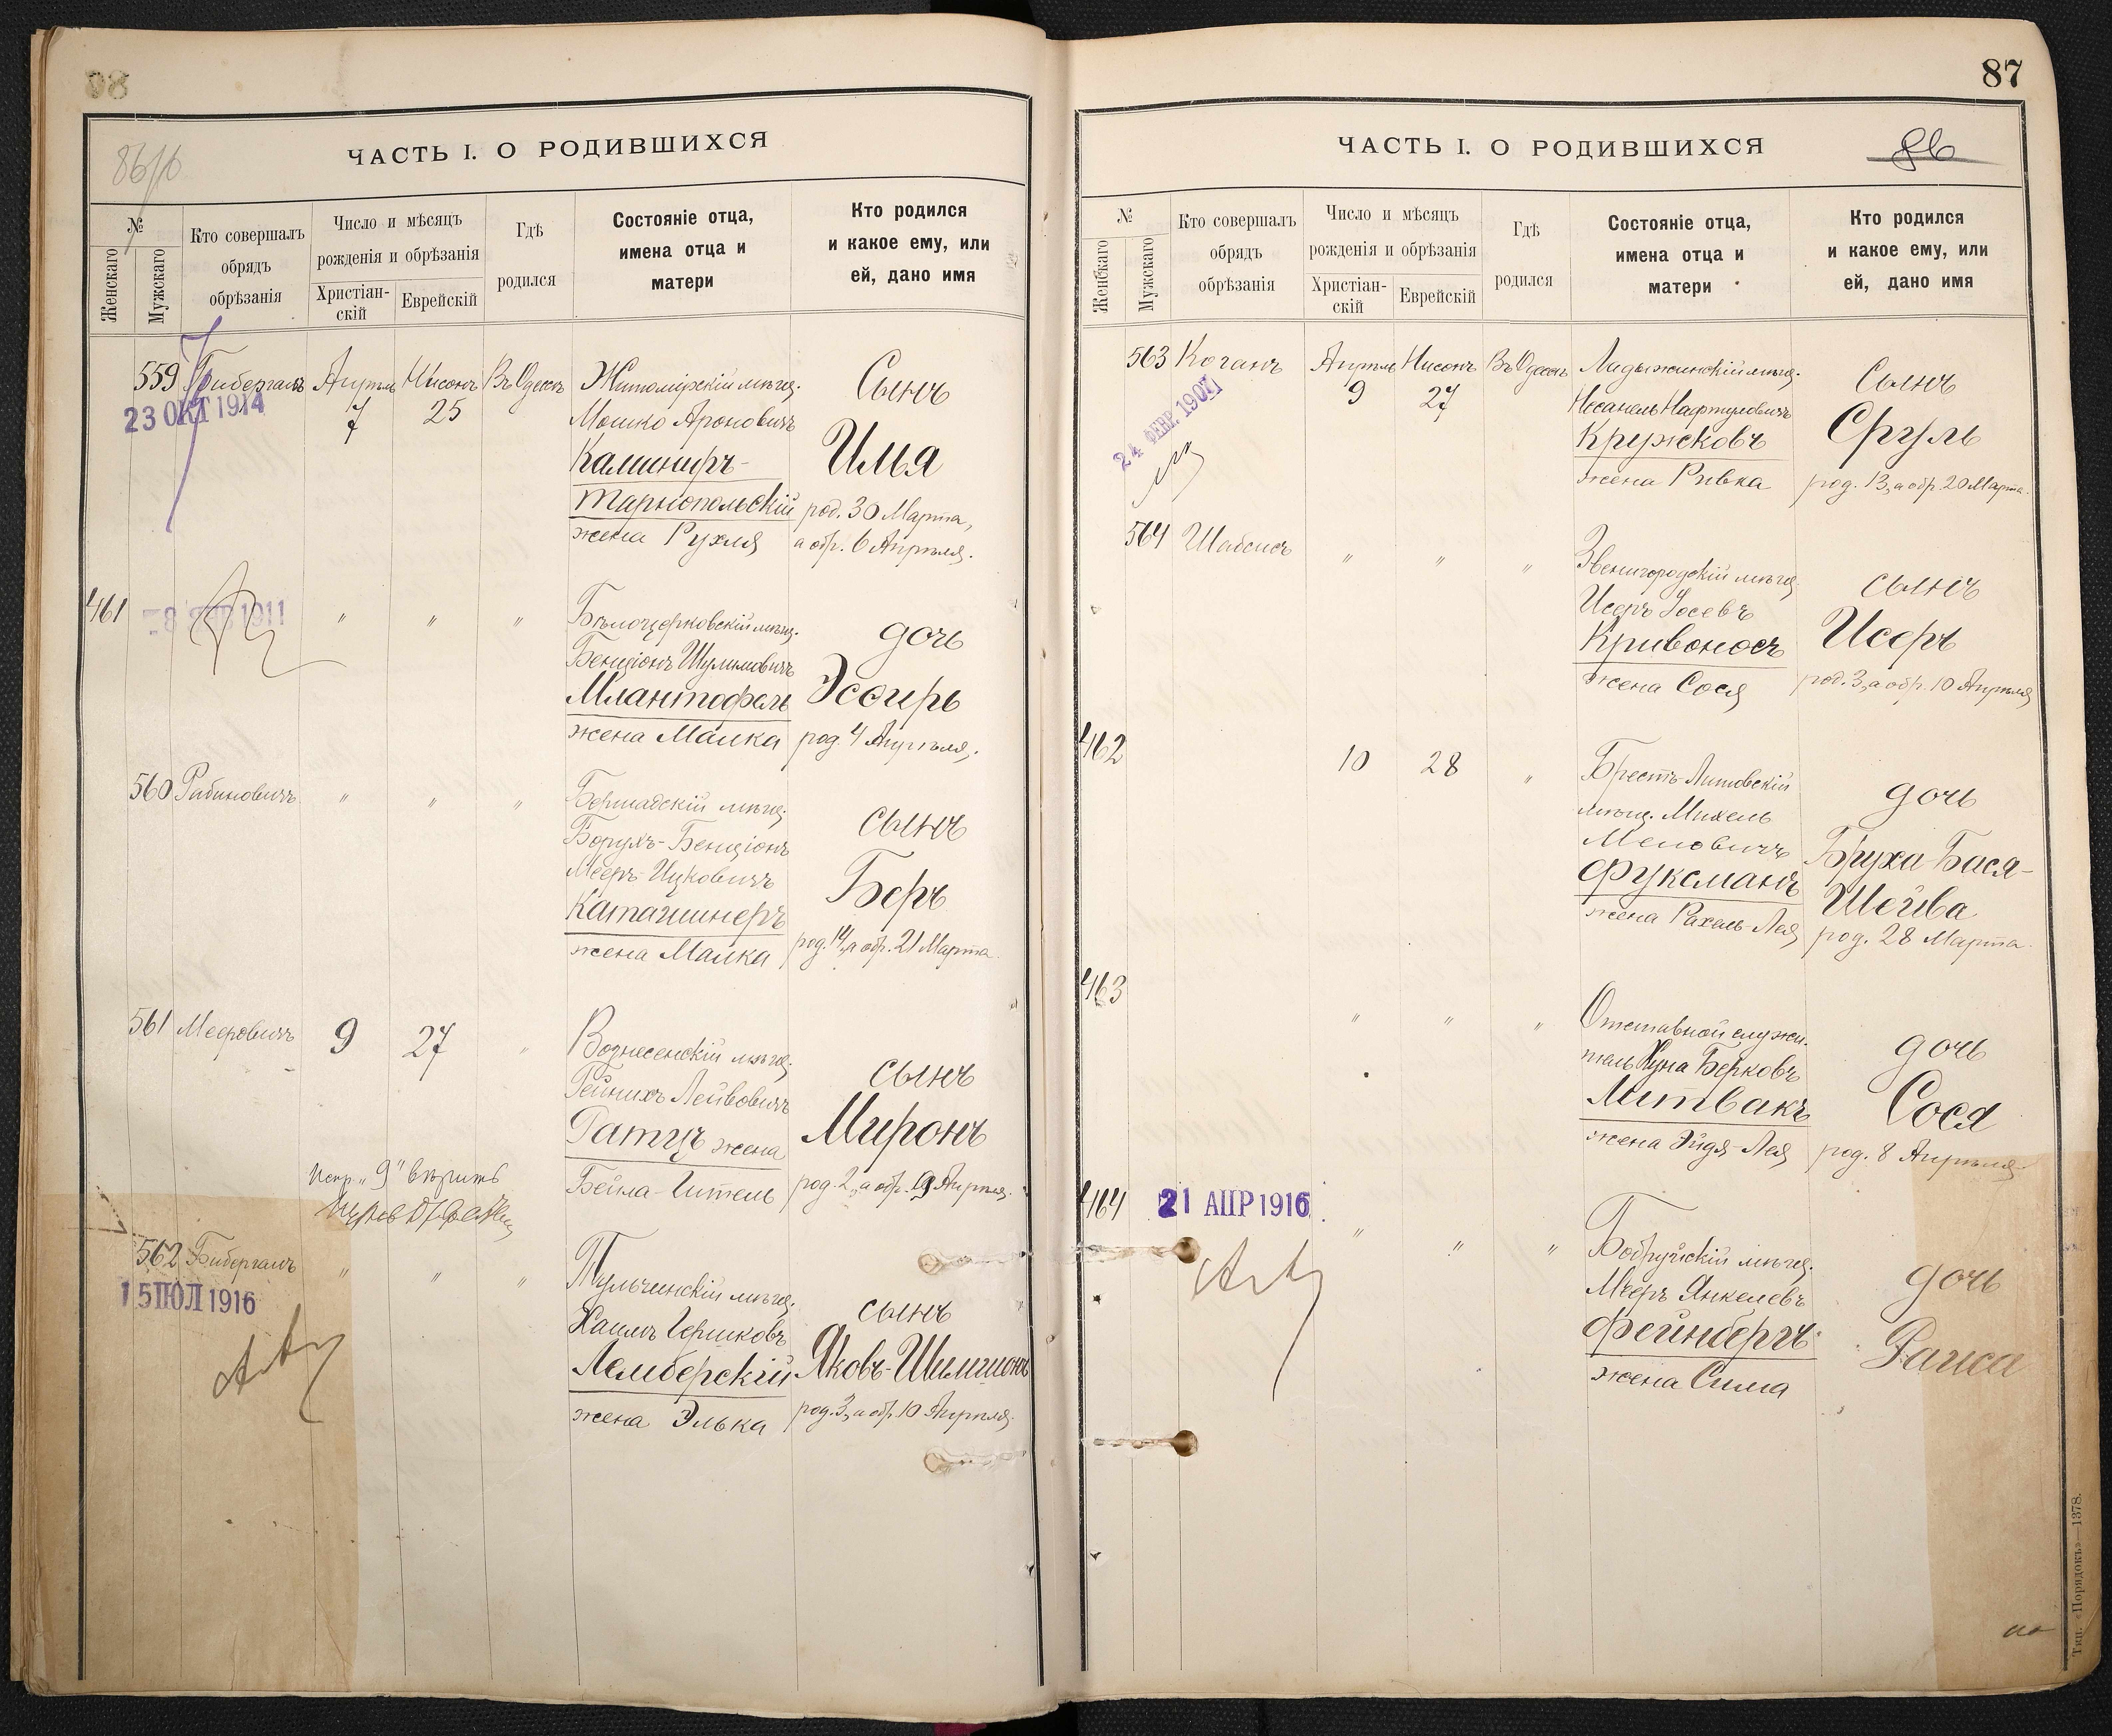 98
87
86/б
ЧАСТЬ I. О РОДИВШИХСЯ
№
Женскаго
Мужскаго
Кто совершалъ
обрядъ
обрѣзанія
Число и мѣсяцъ
рожденія и обрѣзанія
Христіан-
скій
Еврейскій
Гдѣ
родился
Состояніе отца,
имена отца и
матери
Кто родился
и какое ему, или
ей, дано имя
559 Бибергалъ Апрѣль Нисонъ Въ Одессѣ Житомірскій мѣщ. Сынъ
23 ОКТ 1914
7 25 Мошко Ароновичъ
Каминиръ- Илья
Тарнопольскій род. 30 Марта,
жена Рухля а обр. 6 Апрѣля.
461 28 1911 " " " Бѣлоцерковскій мѣщ. дочь
Бенціонъ Шулимовичъ
Млантофель Эсѳирь
жена Малка род. 4 Апрѣля.
560 Рабиновичъ " " " Бершадскій мѣщ. сынъ
Борухъ-Бенціонъ
Мееръ-Ицковичъ Беръ
Каташинеръ
жена Малка род. 14, а обр. 21 Марта.
561 Мееровичъ 9 27 " Вознесенскій мѣщ. сынъ
Гейнихъ Лейвовичъ
Ратцъ жена Миронъ
Бейла-Гитель род. 2, а обр. 9 Апрѣля.
Испр. "9" вѣрить
562 Бибергалъ " " " Тульчинскій мѣщ. сынъ
15 ІЮЛ 1916
Хаимъ Гершковъ
Лемберскій Яковъ-Шимшонъ
жена Элька род. 3, а обр. 10 Апрѣля.
ЧАСТЬ I. О РОДИВШИХСЯ
86
№
Женскаго
Мужскаго
Кто совершалъ
обрядъ
обрѣзанія
Число и мѣсяцъ
рожденія и обрѣзанія
Христіан-
скій
Еврейскій
Гдѣ
родился
Состояніе отца,
имена отца и
матери
Кто родился
и какое ему, или
ей, дано имя
563 Коганъ Апрѣль Нисонъ Въ Одессѣ Ладыжинскій мѣщ. сынъ
24 ФЕВР. 1907
9 27 Несанель Нафтуловичъ
Кружковъ Сруль
жена Ривка род. 13, а обр. 20 Марта.
564 Шабсисъ " " " Звенигородскій мѣщ. сынъ
Исеръ Іосевъ
Кривоносъ Исеръ
жена Сося род. 3, а обр. 10 Апрѣля
462 10 28 " Брестъ-Литовскій дочь
мѣщ. Михель
Меновичъ Бруха-Бася-
Фуксманъ Шейва
жена Рахель-Лея род. 28 Марта.
463 " " " Отставной служи- дочь
тель Куна Берковъ
Литвакъ Сося
жена Эйдя-Лея род. 8 Апрѣля
464 21 АПР 1916 " " " Бобруйскій мѣщ. дочь
Мееръ Янкелевъ
Фейнбергъ Раиса
жена Сима
Тип. «Порядокъ»—1378.